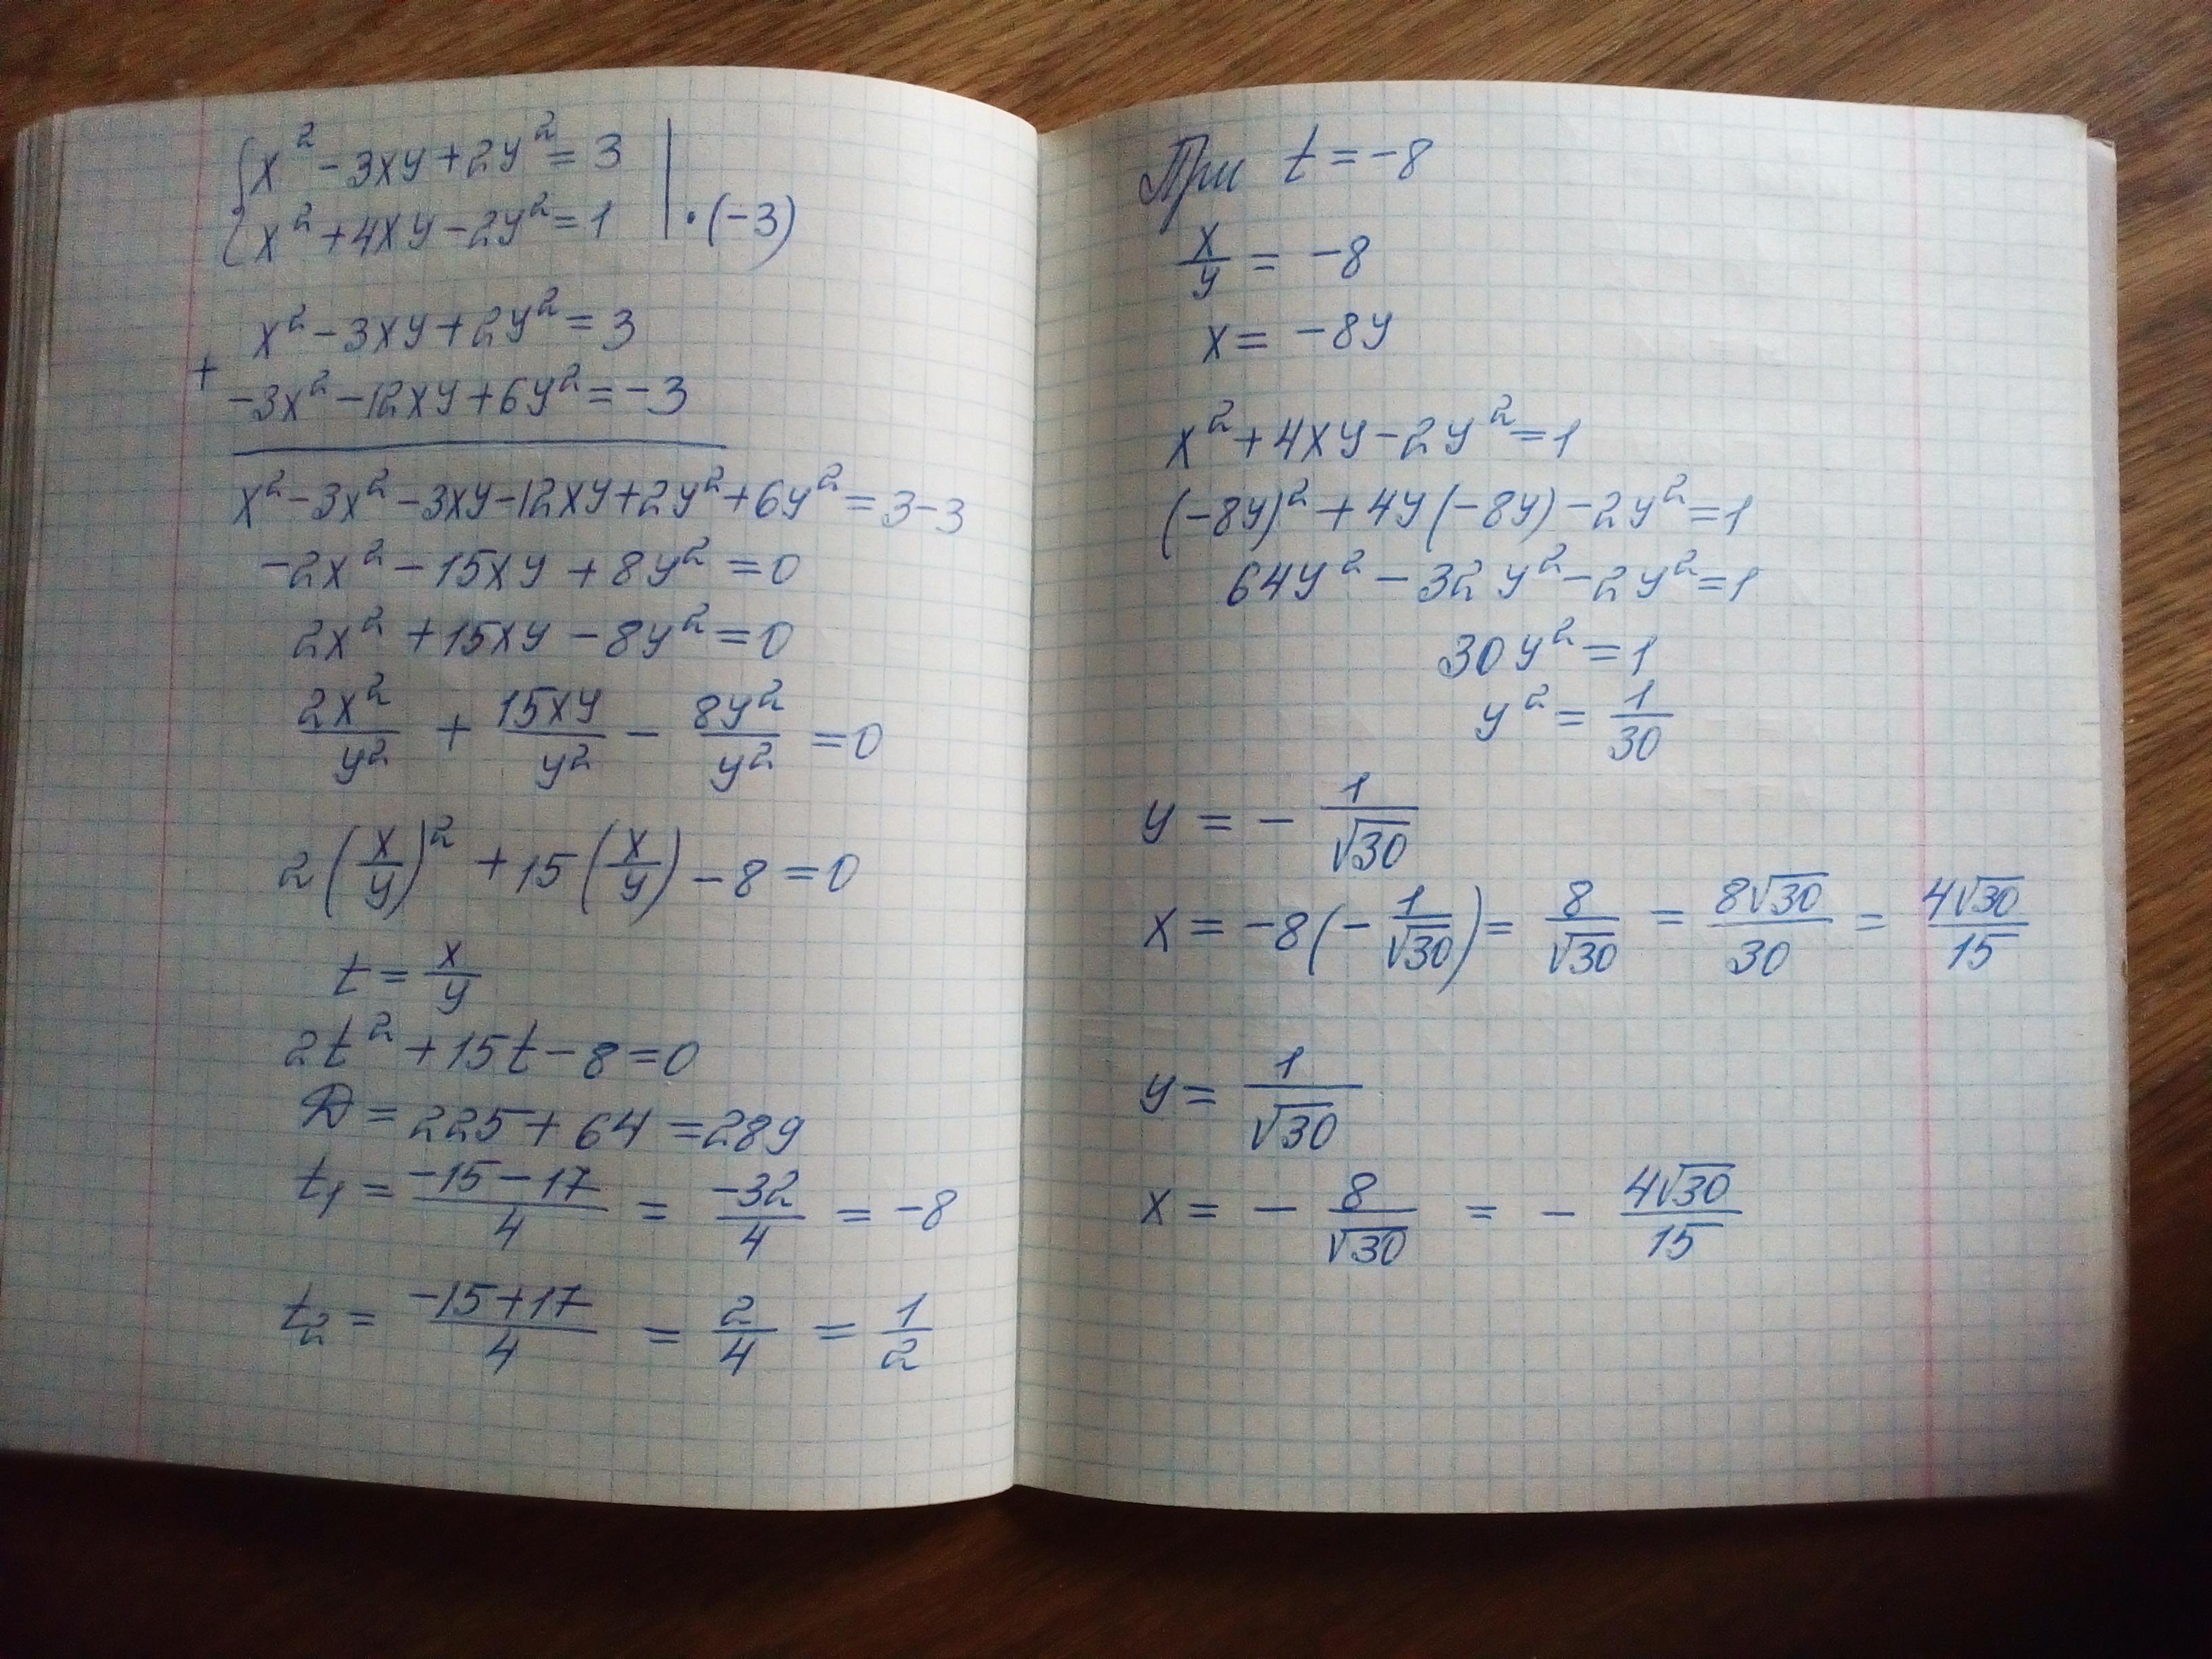 {x² - 3xy + 2y² = 3 |
{x² + 4xy - 2y² = 1 | · (-3)
x² - 3xy + 2y² = 3
+
-3x² - 12xy + 6y² = -3
x² - 3x² - 3xy - 12xy + 2y² + 6y² = 3 - 3
-2x² - 15xy + 8y² = 0
2x² + 15xy - 8y² = 0
2x²/y² + 15xy/y² - 8y²/y² = 0
2(x/y)² + 15(x/y) - 8 = 0
t = x/y
2t² + 15t - 8 = 0
D = 225 + 64 = 289
t₁ = (-15 - 17)/4 = -32/4 = -8
t₂ = (-15 + 17)/4 = 2/4 = 1/2
При t = -8
x/y = -8
x = -8y
x² + 4xy - 2y² = 1
(-8y)² + 4y(-8y) - 2y² = 1
64y² - 32y² - 2y² = 1
30y² = 1
y² = 1/30
y = - 1/√30
x = -8(- 1/√30) = 8/√30 = 8√30/30 = 4√30/15
y = 1/√30
x = - 8/√30 = - 4√30/15